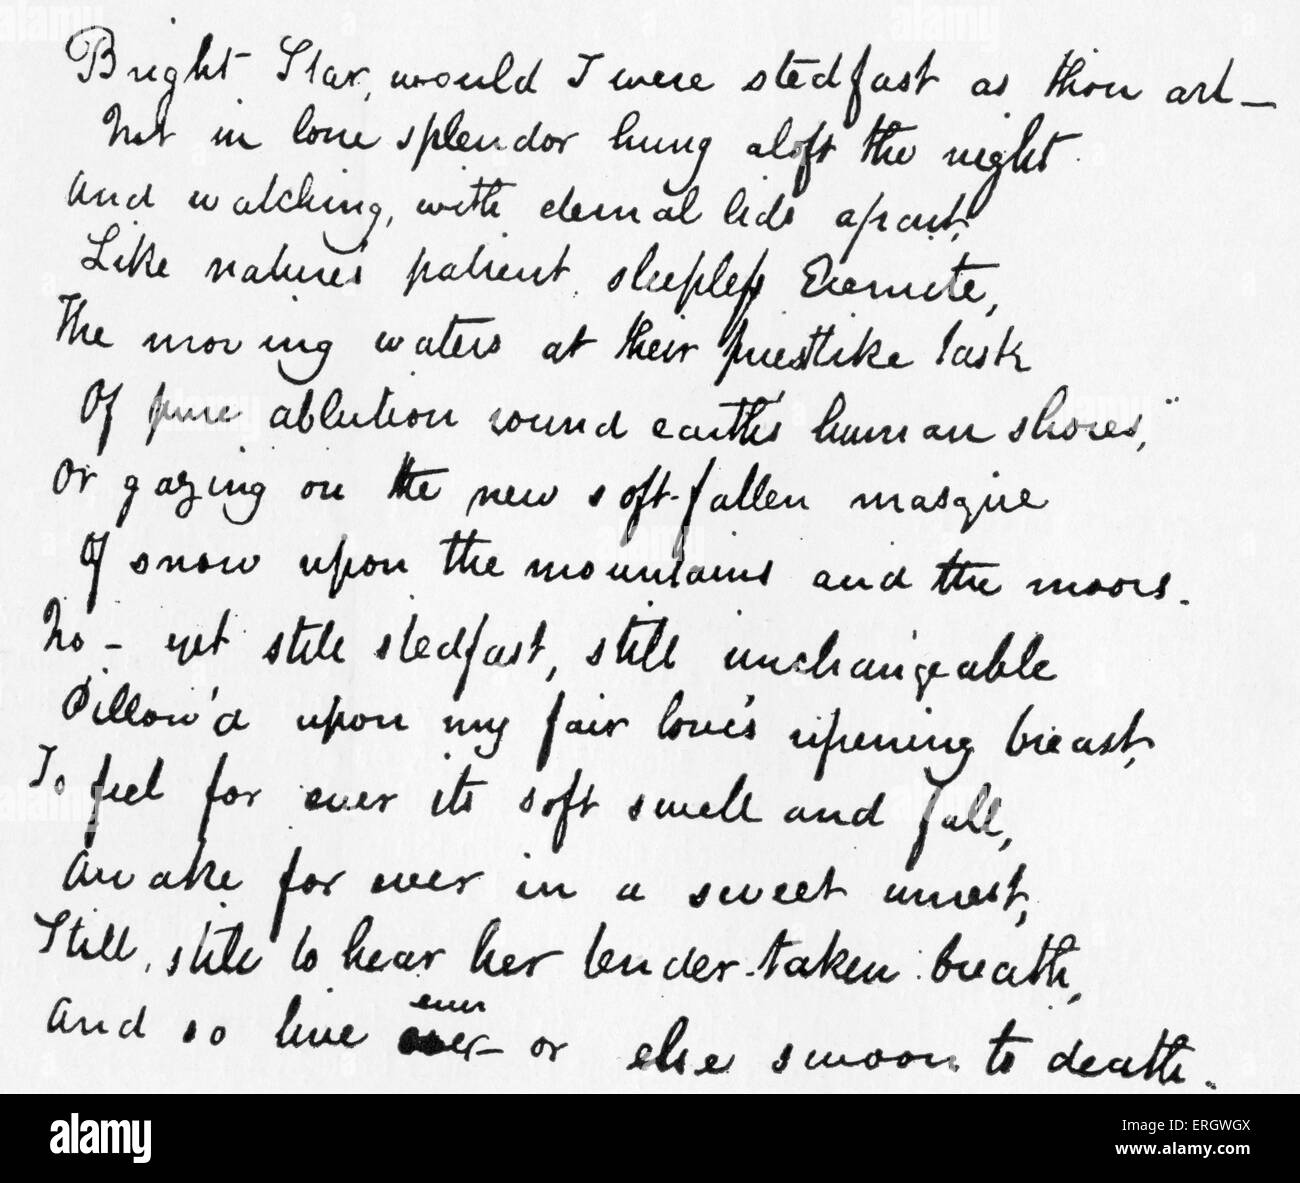 Bright Star, would I were stedfast as thou art —
Not in lone splendor hung aloft the night
And watching, with eternal lids apart,
Like nature's patient, sleepless Eremite,
The moving waters at their priestlike task
Of pure ablution round earth's human shores,
Or gazing on the new soft-fallen masque
Of snow upon the mountains and the moors.
No — yet still stedfast, still unchangeable
Pillow'd upon my fair love's ripening breast,
To feel for ever its soft swell and fall,
Awake for ever in a sweet unrest,
Still, still to hear her tender-taken breath,
even
And so live ever — or else swoon to death.
alamy stock photo
ERGWGX
www.alamy.com